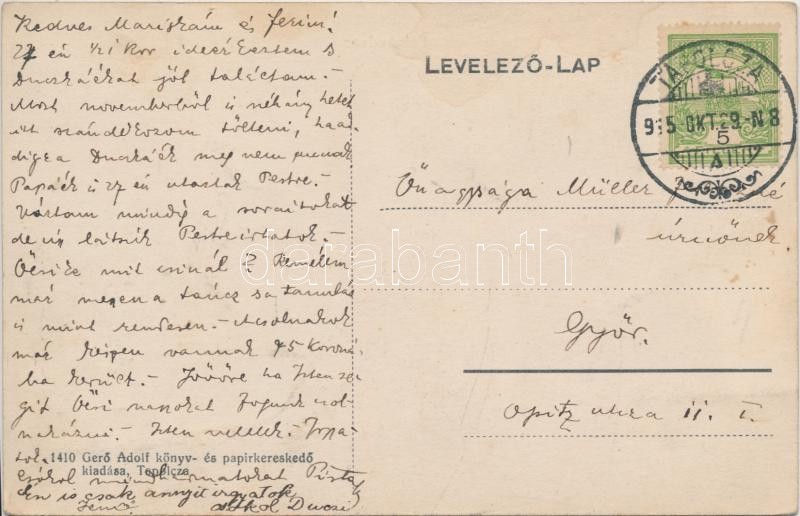 Kedves Mariskám és Ferim!
27 én 1/2 1 kor ideérkeztem s
Ducskáékat jól találtam. -
Most novemberből is néhány hetet
itt szándékozom tölteni, ha ad-
dig a Ducskáék meg nem unnak
Papáék is 27 én utaztak Pestre. -
Vártam mindig a soraitokat
de úgy látszik Pestre irtatok. -
Ősike mit csinál? Remélem
már megen a táncz sa tanulás
is mint rendesen. - A csolnakok
már képen vannak 45 koroná-
ba került. - Jövőre ha Isten se-
git Ősi napokat fogunk csol-
nakázni. - Isten veletek.
Csókol mindnyájatokat Pista
Én is csak annyit irhatok,
Jenő csókol Ducsi
1410 Gerő Adolf könyv- és papirkereskedő
kiadása, Tapolcza
LEVELEZŐ-LAP
TAPOLCZA
915 OKT. 29.-N 8
5
A
Őnagysága Müller
úrnőnek
Győr.
Opitz utcza 11. I.
darabanth
.com